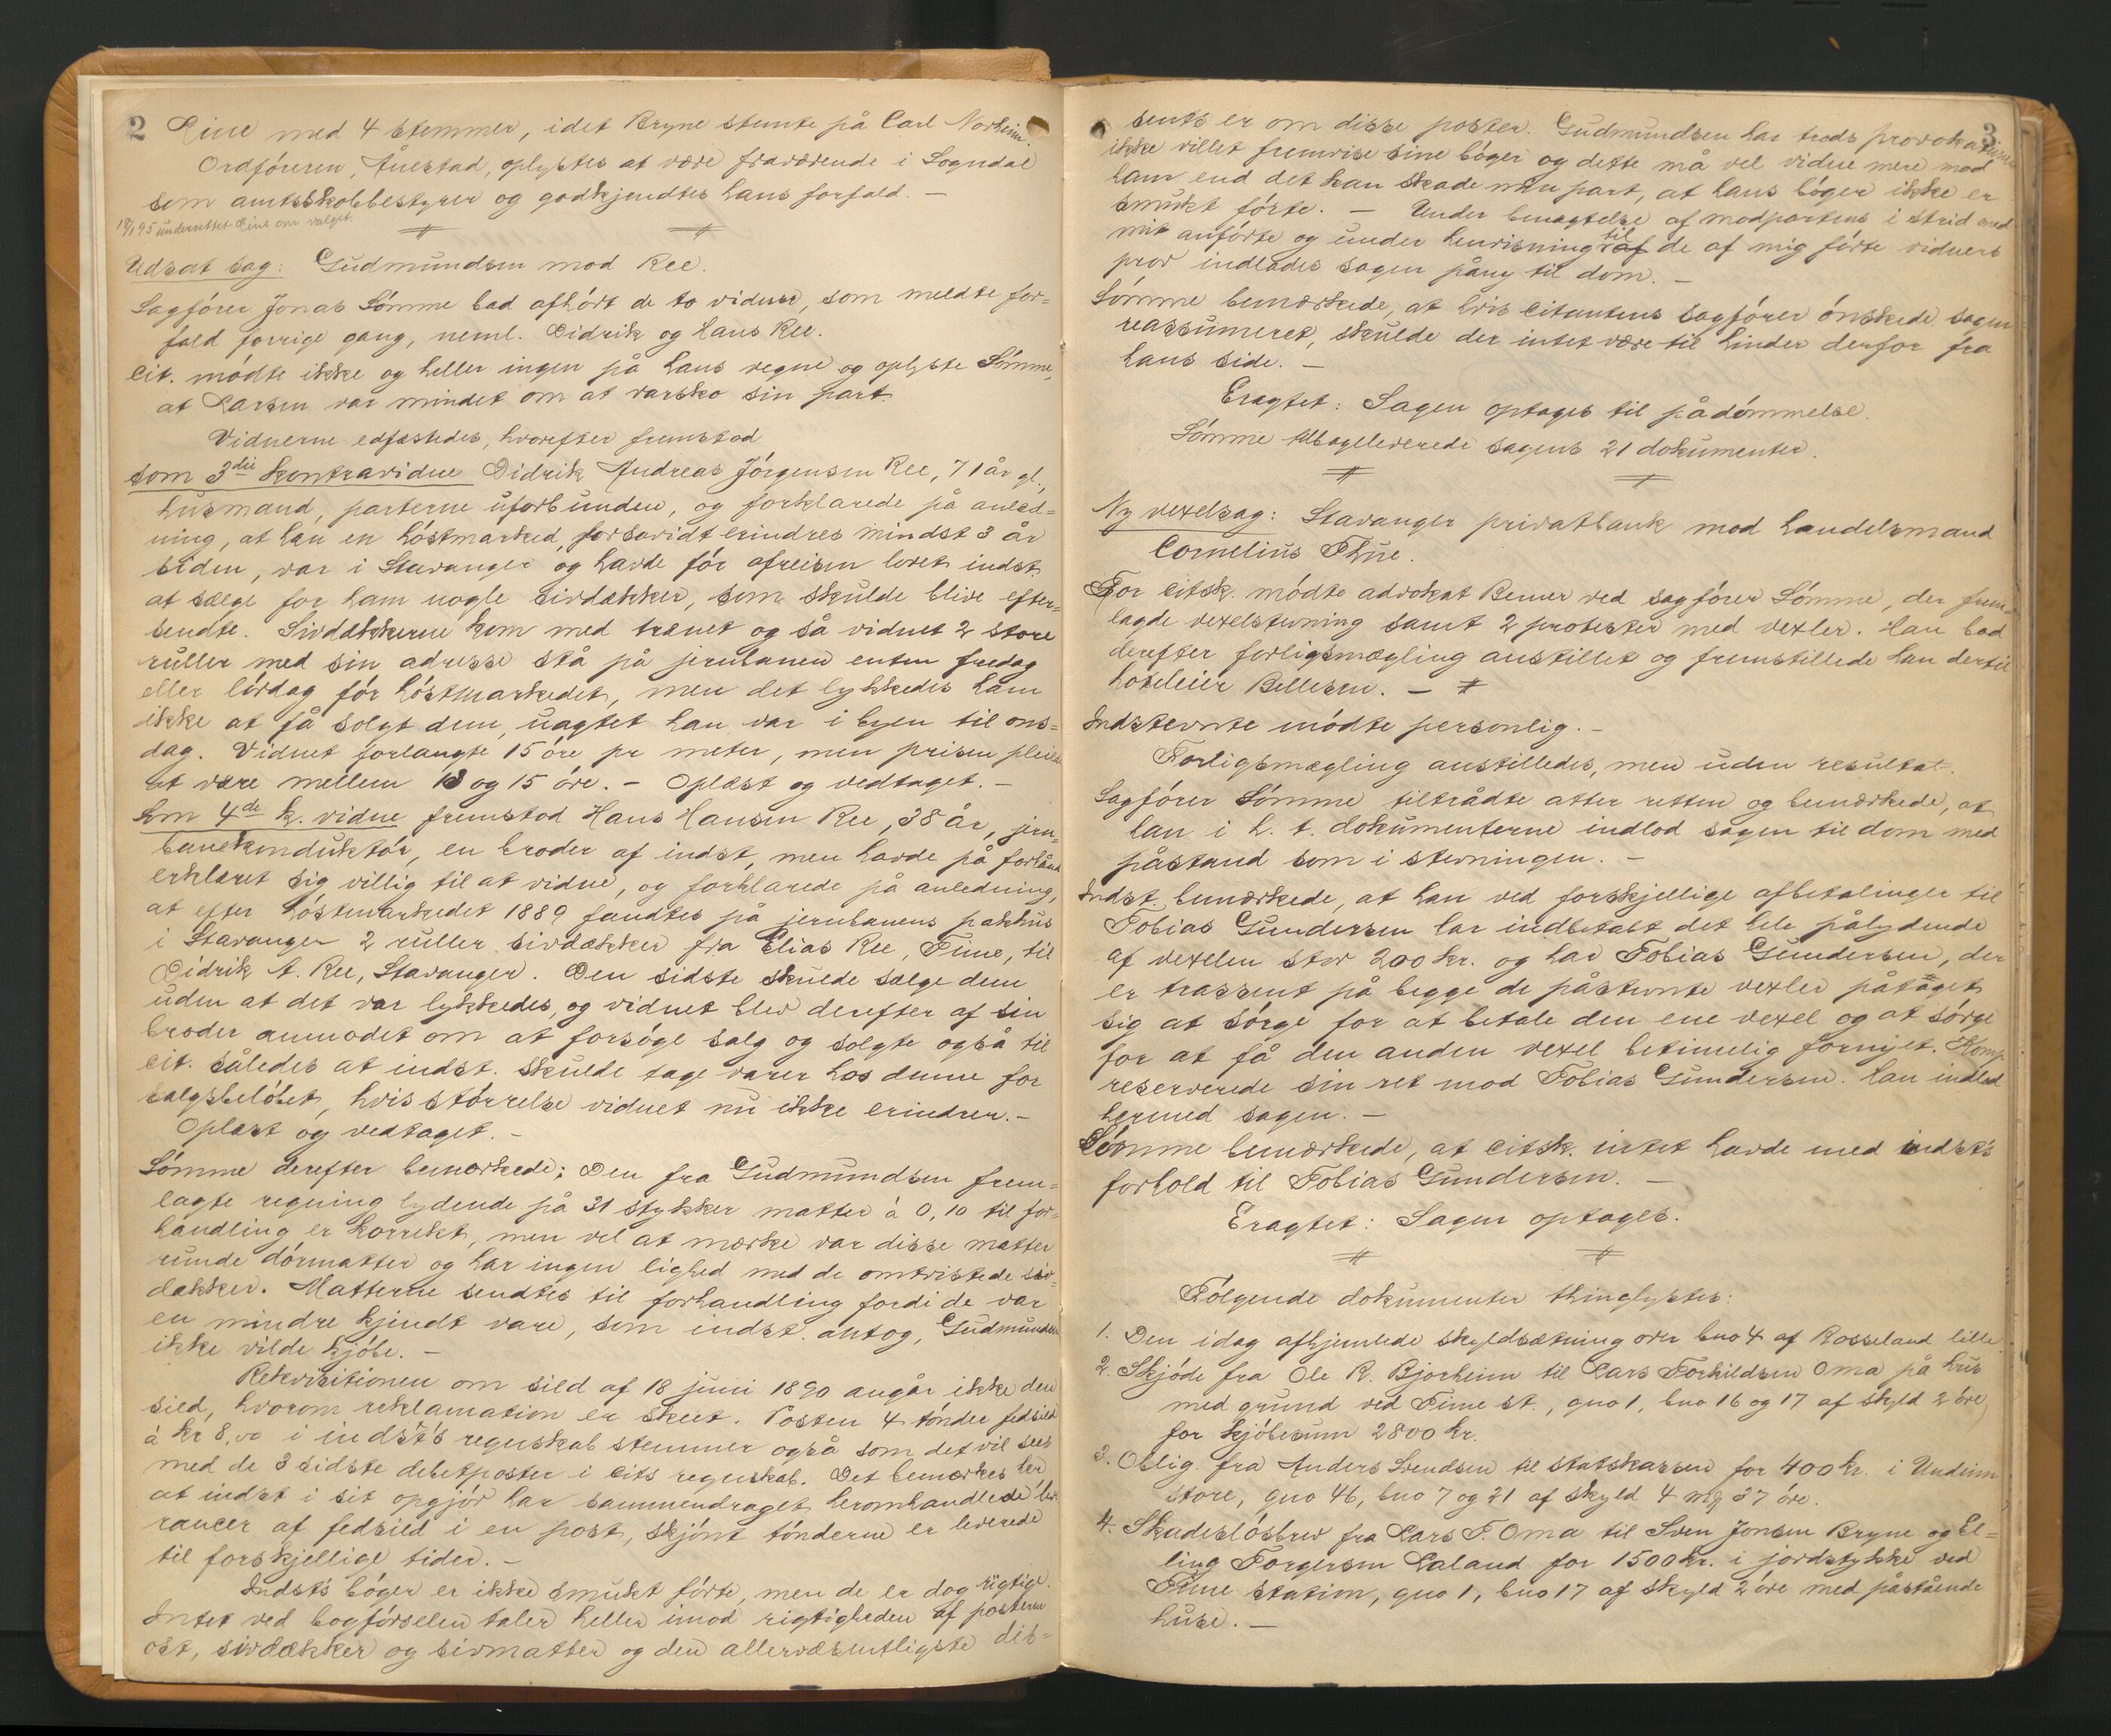 2
Line med 4 stemmer, idet Bryne stemte på Carl Norheim.
Ordføreren, Åuestad, oplystes at være fraværende i Sogndal
som amtsskolebestyrer og godkjendtes hans forfald. —
underrettet Line om valget.
Udsat sag: Gudmundsen mod Ree.
Sagfører Jonas Sømme bad afhørt de to vidner, som meldte for-
fald forrige gang, neml. Didrik og Hans Ree.
Cit. mødte ikke og heller ingen på hans vegne og oplyste Sømme,
at Larsen var mindet om at varsko sin part.
Vidnerne edfæstedes, hvorefter fremstod
som 3die kontravidne Didrik Andreas Jørgensen Ree, 71 år gl.,
husmand, parterne uforbunden, og forklarede på anled-
ning, at han en høstmarked, forsavidt erindres mindst 3 år
siden, var i Stavanger og havde før afreisen lovet indst.
at sælge for ham nogle sivdækker, som skulde blive efter-
sendte. Sivdækkerne kom med trænet og så vidnet 2 store
ruller med sin adresse stå på jernbanen enten fredag
eller lørdag før høstmarkedet, men det lykkedes ham
ikke at få solgt dem, uagtet han var i byen til ons-
dag. Vidnet forlangte 15 øre pr meter, men prisen pleied
at være mellem 13 og 15 øre. — Oplæst og vedtaget. —
Som 4de k. vidne fremstod Hans Hansen Ree, 38 år, jern-
banekonduktør, en broder af indst., men havde på forhånd
erklæret sig villig til at vidne, og forklarede på anledning,
at efter høstmarkedet 1889 fandtes på jernbanens pakhus
i Stavanger 2 ruller sivdækker fra Elias Ree, Time, til
Didrik A. Ree, Stavanger. Den sidste skulde sælge dem
uden at det var lykkedes, og vidnet blev derefter af sin
broder anmodet om at forsøge salg og solgte også til
cit. således at indst. skulde tage varer hos denne for
salgsbeløbet, hvis størrelse vidnet nu ikke erindrer. —
Oplæst og vedtaget. —
Sømme derefter bemærkede: Den fra Gudmundsen frem-
lagte regning lydende på 31 stykker matter à 0,10 til for-
handling er korrekt, men vel at mærke var disse matter
runde dørmatter og har ingen lighed med de omtvistede siv-
dækker. Matterne sendtes til forhandling fordi de var
en mindre kjendt vare, som indst. antog, Gudmundsen
ikke vilde kjøbe. —
Rekvisitionen om sild af 18 juni 1890 angår ikke den
sild, hvorom reklamation er skeet. Posten 4 tønder fedsild
à kr 8,00 i indst's regnskab stemmer også som det vil sees
med de 3 sidste debetposter i cits regnskab. Det bemærkes her
at indst i sit opgjør har sammendraget heromhandlede leve
rancer af fedsild i en post, skjønt tønderne er leverede
til forskjellige tider. —
Indst's bøger er ikke smukt førte, men de er dog rigtige.
Intet ved bogførselen taler heller imod rigtigheden af posterne
ost, sivdækker og sivmatter og den allervæsentligste dis-
3
sents er om disse poster. Gudmundsen har trods provokationen
ikke villet fremvise sine bøger og dette må vel vidne mere mod
ham end det kan skade min part, at hans bøger ikke er
smukt førte. — Under benægtelse af modpartens i strid med
mit anførte og under henvisning til de af mig førte vidners
prov indlades sagen påny til dom. —
Sømme bemærkede, at hvis citantens sagfører ønskede sagen
reassumeret, skulde der intet være til hinder derfor fra
hans side. —
Eragtet: Sagen optages til pådømmelse.
Sømme tilbageleverede sagens 21 dokumenter.
Ny vexelsag: Stavanger privatbank mod handelsmand
Cornelius Thue.
For citsk. mødte advokat Berner ved sagfører Sømme, der frem-
lagde vexelstevning samt 2 protester med vexler. Han bad
derefter forligsmægling anstillet og fremstillede han dertil
hoteleier Bellesen. —
Indstevnte mødte personlig. —
Forligsmægling anstilledes, men uden resultat.
Sagfører Sømme tiltrådte atter retten og bemærkede, at
han i h. t. dokumenterne indlod sagen til dom med
påstand som i stevningen. —
Indst. bemærkede, at han ved forskjellige afbetalinger til
Tobias Gundersen har indbetalt det hele pålydende
af vexelen stor 200 kr. og har Tobias Gundersen, der
er trassent på begge de påstevnte vexler påtaget
sig at sørge for at betale den ene vexel og at sørge
for at få den anden vexel betimelig fornyet. Komp.
reserverede sin ret mod Tobias Gundersen. Han indlod
hermed sagen. —
Sømme bemærkede, at citsk. intet havde med indst's
forhold til Tobias Gundersen. —
Eragtet: Sagen optages.
Følgende dokumenter thinglystes:
1. Den idag afhjemlede skyldsætning over bno 4 af Rosseland lille.
2. Skjøde fra Ole R. Bjorheim til Lars Torkildsen Oma på hus
med grund ved Time st., gno 1, bno 16 og 17 af skyld 2 øre,
for kjøbesum 2800 kr.
3. Oblig. fra Anders Svendsen til statskassen for 400 kr. i Undheim
store, gno 46, bno 7 og 21 af skyld 4 mg 37 øre.
4. Skadesløsbrev fra Lars T. Oma til Sven Jonsen Bryne og El-
ling Torgersen Laland for 1500 kr. i jordstykke ved
Time station, gno 1, bno 17 af skyld 2 øre med påstående
huse. —